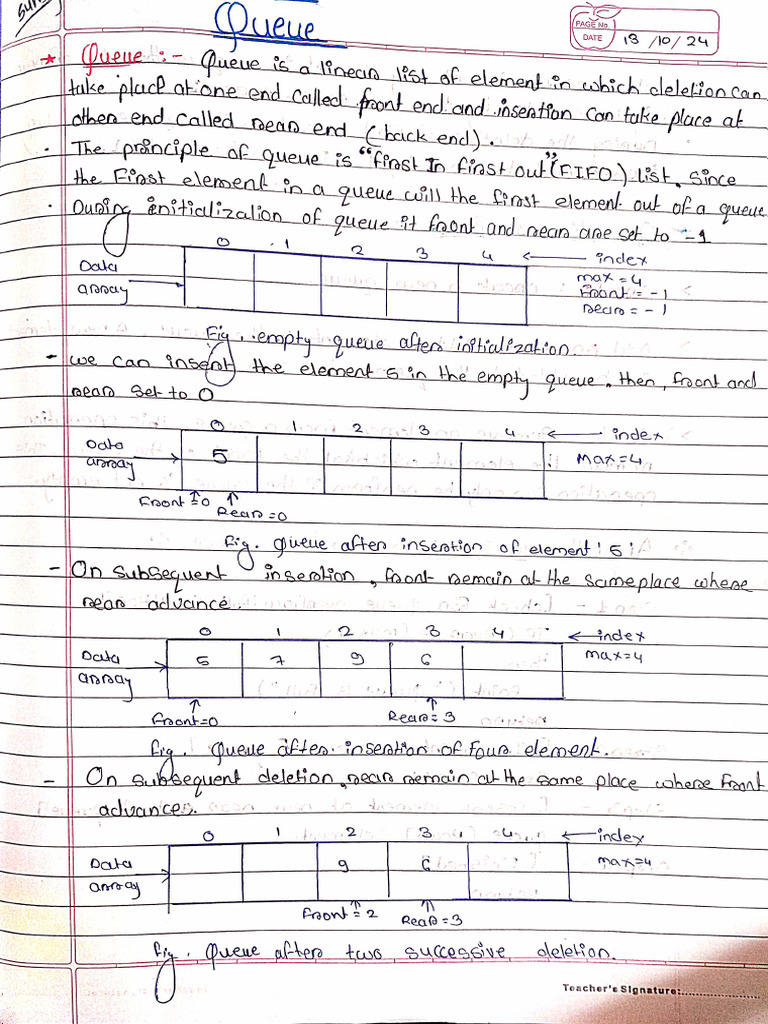 Queue
PAGE No.
DATE 18/10/24
* Queue :- Queue is a linear list of element in which deletion can
take place at one end called front end and insertion can take place at
other end called rear end (back end).
· The principle of queue is "first In first out" (FIFO) list, since
the First element in a queue will the first element out of a queue
· During initialization of queue it front and rear are set to -1
0 1 2 3 4 ← index
Data
array
max = 4
Front = -1
rear = -1
Fig. empty queue after initialization.
- we can insert the element 5 in the empty queue, then, front and
rear set to 0
0 1 2 3 4 ← index
Data
array → 5
max=4
Front =0 Rear=0
Fig. queue after insertion of element '5'
- On subsequent insertion, front remain at the same place where
rear advance.
0 1 2 3 4 ← index
Data
array → 5 7 9 6
max=4
Front=0 Rear=3
fig. Queue after insertion of four element.
- On subsequent deletion, rear remain at the same place where front
advances.
0 1 2 3 4 ← index
Data
array → 9 6
max=4
Front=2 Rear=3
Fig. Queue after two successive deletion.
Teacher's Signature: